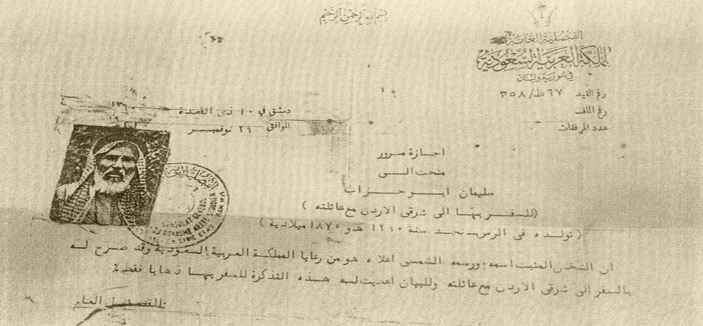 بسم الله الرحمن الرحيم
القنصلية العامة
للمملكة العربية السعودية
في سورية ولبنان
رقم القيد ٦٧ ط / ٣٥٨
رقم الملف
عدد المرفقات
دمشق في ١٠ ذي القعدة
الموافق ٢٩ نوفمبر
اجازة مرور
منحت الى
سليمان ابو حزاب
(للسفر بها الى شرقي الاردن مع عائلته)
(تولده في الرس بنجد سنة ميلادية)
ان الشخص المثبت اسمه ورسمه الشمسي اعلاه هو من رعايا المملكة العربية السعودية وقد صرح له
بالسفر الى شرقي الاردن مع عائلته وللبيان اعطيت له هذه التذكرة للسفر بها ذهابا فقط
القنصل العام
CONSULAT GENERAL